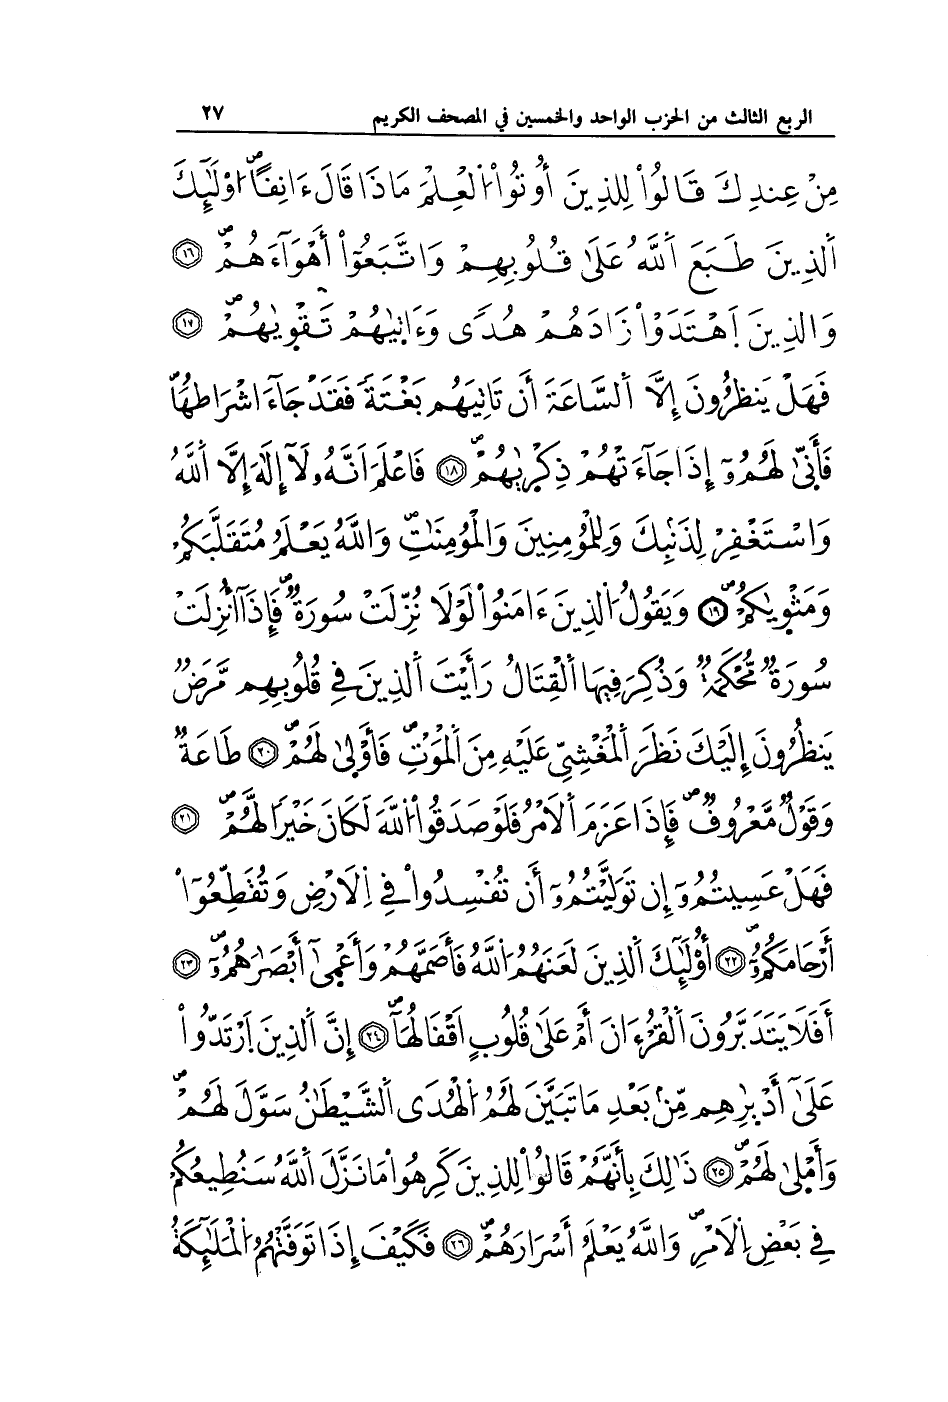 الربع الثالث من الحزب الواحد والخمسين في المصحف الكريم ٢٧
مِنْ عِندِكَ قَالُواْ لِلذِينَ أُوتُواْ اُلْعِلْمَ مَاذَا قَالَ ءَانِفاًۖ اوْلَٰٓئِكَ
اَلذِينَ طَبَعَ اَللَّهُ عَلَىٰ قُلُوبِهِمْ وَاتَّبَعُوٓاْ أَهْوَآءَهُمْۖ ١٦
وَالذِينَ اَهْتَدَوْاْ زَادَهُمْ هُدًى وَءَاتَيٰهُمْ تَقْوَيٰهُمْۖ ١٧
فَهَلْ يَنظُرُونَ إِلَّا اَلسَّاعَةَ أَن تَاتِيَهُم بَغْتَةً فَقَدْ جَآءَ اشْرَاطُهَاۖ
فَأَنّ۪ىٰ لَهُمُۥٓ إِذَا جَآءَتْهُمْ ذِكْر۪يٰهُمْۖ ١٨ فَاعْلَمَ اَنَّهُۥ لَآ إِلَٰهَ إِلَّا اَللَّهُ
وَاسْتَغْفِرْ لِذَنۢبِكَ وَلِلْمُؤْمِنِينَ وَالْمُؤْمِنَٰتِۖ وَاللَّهُ يَعْلَمُ مُتَقَلَّبَكُمْ
وَمَثْوَيٰكُمْۖ ١٩ وَيَقُولُ اُلذِينَ ءَامَنُواْ لَوْلَا نُزِّلَتْ سُورَةٌۖ فَإِذَآ أُنزِلَتْ
سُورَةٌ مُّحْكَمَةٌ وَذُكِرَ فِيهَا اَلْقِتَالُ رَأَيْتَ اَلذِينَ فِي قُلُوبِهِم مَّرَضٌ
يَنظُرُونَ إِلَيْكَ نَظَرَ اَلْمَغْشِيِّ عَلَيْهِ مِنَ اَلْمَوْتِۖ فَأَوْلَىٰ لَهُمْۖ ٢٠ طَاعَةٌ
وَقَوْلٌ مَّعْرُوفٌۖ فَإِذَا عَزَمَ اَلَامْرُ فَلَوْ صَدَقُواْ اُللَّهَ لَكَانَ خَيْراً لَّهُمْۖ ٢١
فَهَلْ عَسِيتُمُۥٓ إِن تَوَلَّيْتُمُۥٓ أَن تُفْسِدُواْ فِي اِلَارْضِ وَتُقَطِّعُوٓاْ
أَرْحَامَكُمُۥٓۖ ٢٢ أُوْلَٰٓئِكَ اَلذِينَ لَعَنَهُمُ اُللَّهُ فَأَصَمَّهُمْ وَأَعْمَىٰٓ أَبْصَٰرَهُمُۥٓۖ ٢٣
أَفَلَا يَتَدَبَّرُونَ اَلْقُرْءَانَ أَمْ عَلَىٰ قُلُوبٍ اَقْفَالُهَآۖ ٢٤ إِنَّ اَلذِينَ اَرْتَدُّواْ
عَلَىٰٓ أَدْبٰ۪رِهِم مِّنۢ بَعْدِ مَا تَبَيَّنَ لَهُمُ اُلْهُدَى اَلشَّيْطَٰنُ سَوَّلَ لَهُمْۖ
وَأَمْلَىٰ لَهُمْۖ ٢٥ ذَٰلِكَ بِأَنَّهُمْ قَالُواْ لِلذِينَ كَرِهُواْ مَا نَزَّلَ اَللَّهُ سَنُطِيعُكُمْ
فِي بَعْضِ اِلَامْرِۖ وَاللَّهُ يَعْلَمُ أَسْرَارَهُمْۖ ٢٦ فَكَيْفَ إِذَا تَوَفَّتْهُمُ اُلْمَلَٰٓئِكَةُ